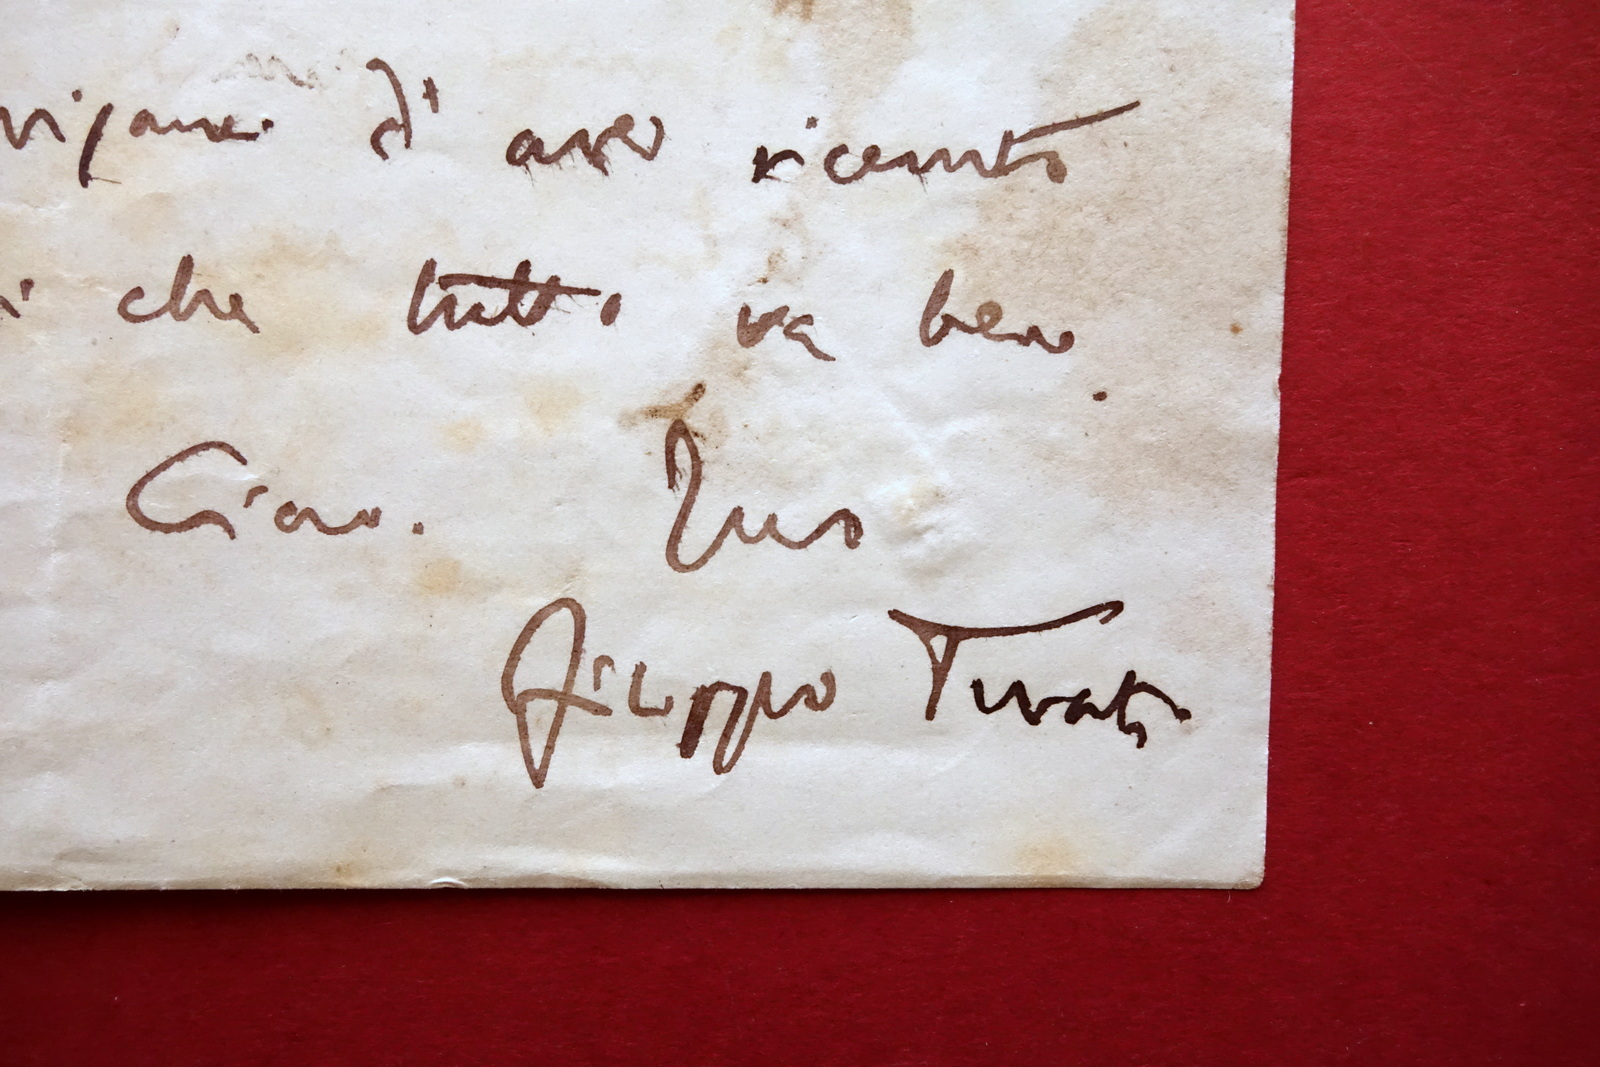 d'aver ricevuto
che tutto va bene.
Ciao. Tuo
Filippo Turati